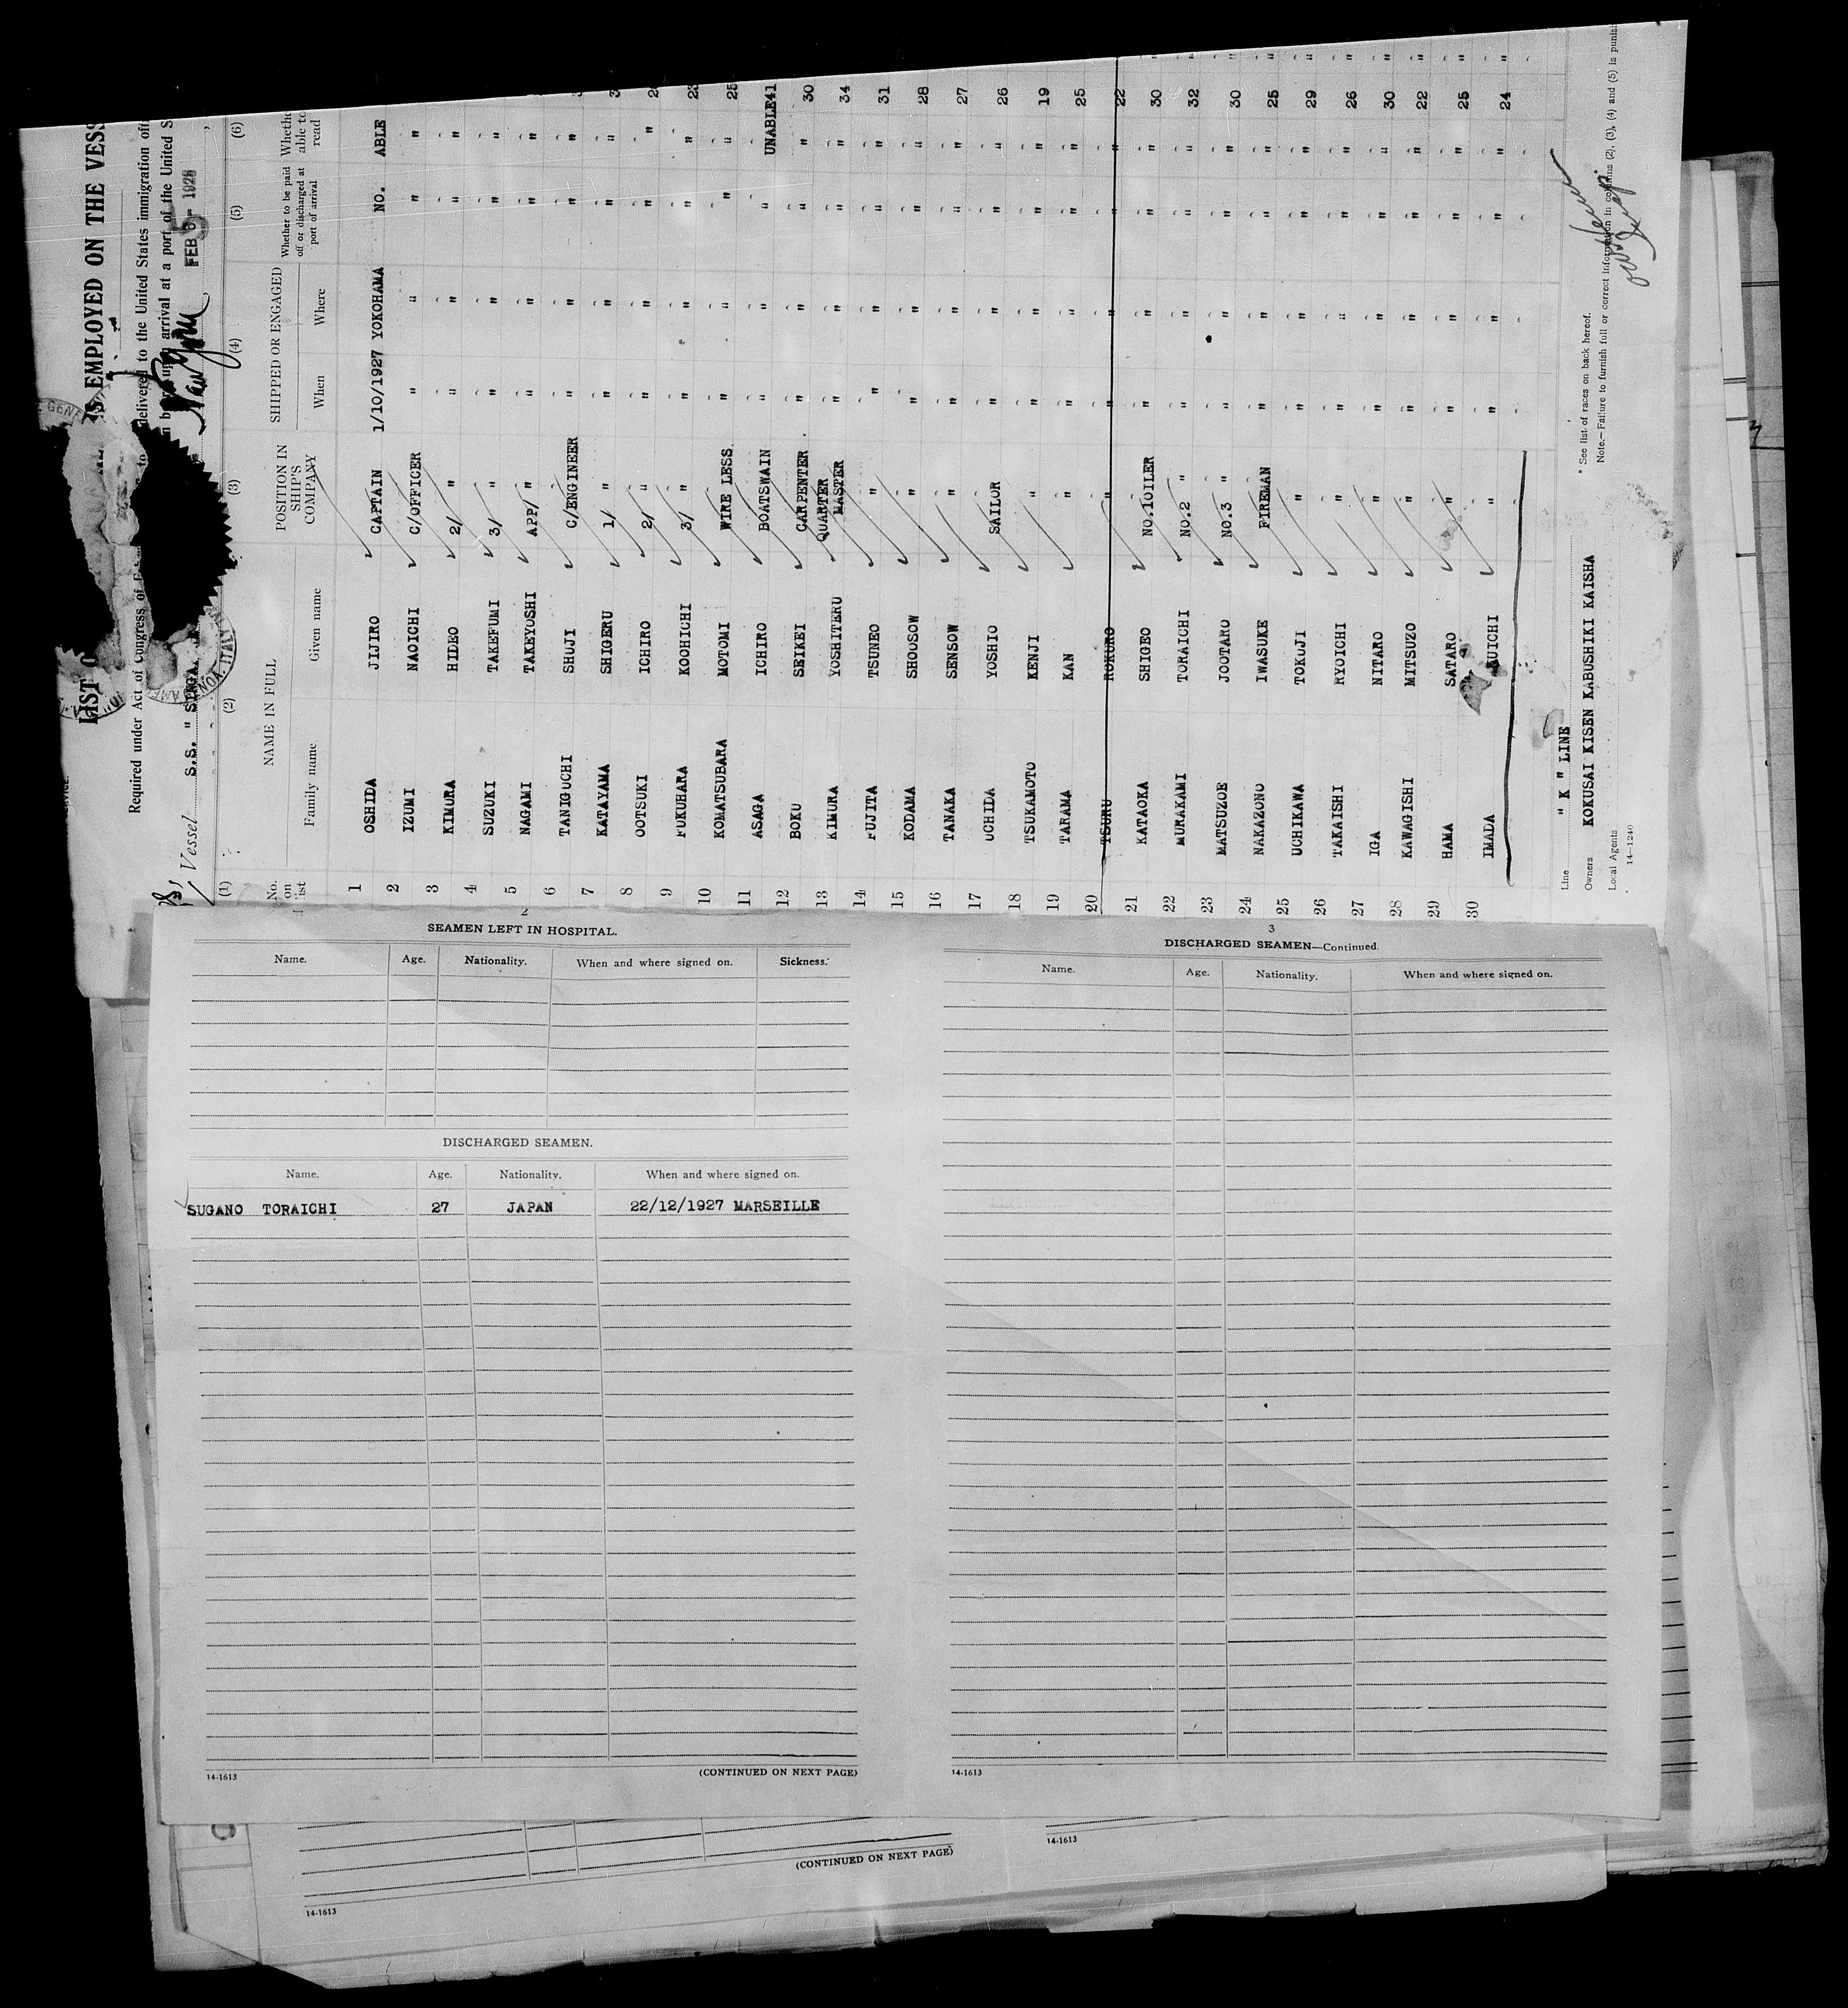 LIST
IS EMPLOYED ON THE VESS
Required under Act of Congress of
delivered to the United States immigration off
arrival at a port of the United S
Vessel S.S. "
FEB 1928
(1) (2) (3) (4) (5) (6)
No. on list
NAME IN FULL
Family name Given name
POSITION IN SHIP'S COMPANY
SHIPPED OR ENGAGED
When Where
Whether to be paid off or discharged at port of arrival
Whethe able to read
1 OSHIDA JIJIRO CAPTAIN 1/10/1927 YOKOHAMA NO. ABLE
2 IZUMI NAOICHI C/OFFICER " " " "
3 KIMURA HIDEO 2/ " " " " "
4 SUZUKI TAKEFUMI 3/ " " " " "
5 NAGAMI TAKEYOSHI APP/ " " " " "
6 TANIGUCHI SHUJI C/ENGINEER " " " "
7 KATAYAMA SHIGERU 1/ " " " " "
8 OOTSUKI ICHIRO 2/ " " " " "
9 FUKUHARA KOOHICHI 3/ " " " " "
10 KOMATSUBARA MOTOMI WIRE LESS " " " " 25
11 ASAGA ICHIRO BOATSWAIN " " " UNABLE 41
12 BOKU SEIKEI CARPENTER " " " " 30
13 KIMURA YOSHITERU QUARTER MASTER " " " " 34
14 FUJITA TSUNEO " " " " " 31
15 KODAMA SHOOSOW " " " " " 28
16 TANAKA SENSOW " " " " " 27
17 UCHIDA YOSHIO SAILOR " " " " 26
18 TSUKAMOTO KENJI " " " " " 19
19 TARAMA KAN " " " " " 25
20 TSURU ROKURO " " " " " 22
21 KATAOKA SHIGEO NO.1OILER " " " " 30
22 MURAKAMI TORAICHI NO.2 " " " " " 32
23 MATSUZOE JOOTARO NO.3 " " " " " 30
24 NAKAZONO IWASUKE FIREMAN " " " " 25
25 UCHIKAWA TOKUJI " " " " " 29
26 TAKAISHI RYOICHI " " " " " 26
27 IGA NITARO " " " " " 30
28 KAWAGISHI MITSUZO " " " " " 22
29 HAMA SATARO " " " " " 25
30 IMADA " " " " " 24
Line " K " LINE
Owners KOKUSAI KISEN KABUSHIKI KAISHA
Local Agents
14-1240
* See list of races on back hereof.
Note.—Failure to furnish full or correct information in columns (2), (3), (4) and (5) is punis
2
SEAMEN LEFT IN HOSPITAL.
Name. Age. Nationality. When and where signed on. Sickness.
DISCHARGED SEAMEN.
Name. Age. Nationality. When and where signed on.
SUGANO TORAICHI 27 JAPAN 22/12/1927 MARSEILLE
14-1613
(CONTINUED ON NEXT PAGE)
3
DISCHARGED SEAMEN—Continued.
Name. Age. Nationality. When and where signed on.
14-1613
(CONTINUED ON NEXT PAGE)
14-1613
14-1613